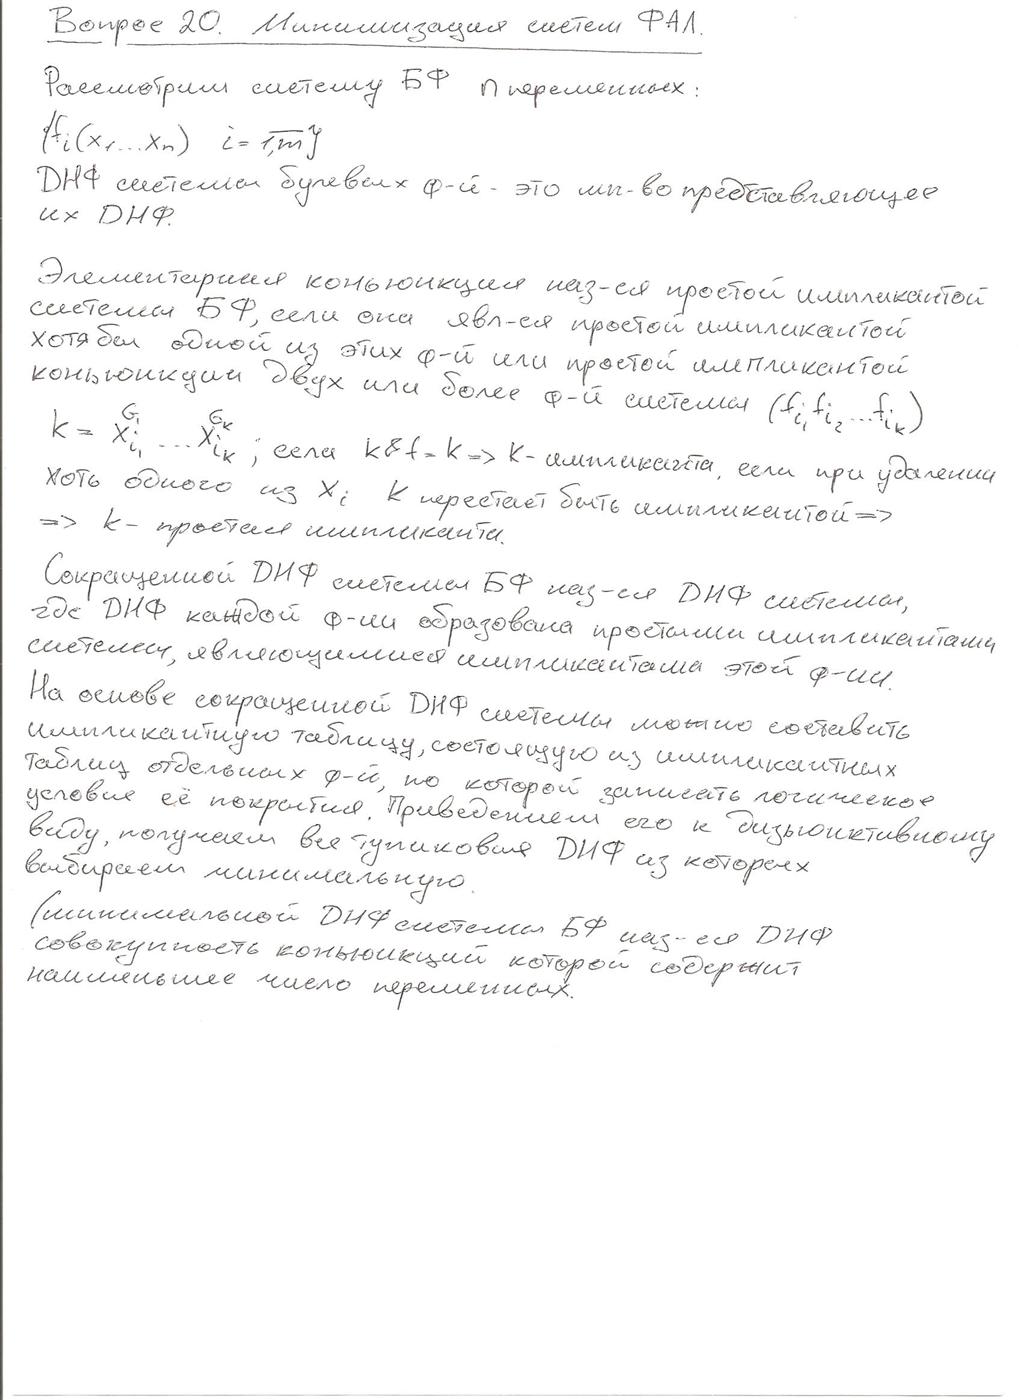 Вопрос 20. Минимизация систем ФАЛ.
Рассмотрим систему БФ n переменных:
{fᵢ(x₁...xₙ) i = 1,m̅}
ДНФ системы булевых ф-й - это мн-во представляющее
их ДНФ.
Элементарная коньюнкция наз-ся простой импликантой
системы БФ, если она явл-ся простой импликантой
хотя бы одной из этих ф-й или простой импликантой
коньюнкции двух или более ф-й системы (f_{i₁} f_{i₂} ... f_{i_k})
k = x_{i₁}^{G₁} ... x_{i_k}^{G_k} ; если k&f = k => k - импликанта, если при удалении
хоть одного из xᵢ k перестает быть импликантой =>
=> k - простая импликанта.
Сокращенной ДНФ системы БФ наз-ся ДНФ системы,
где ДНФ каждой ф-ии образована простыми импликантами
системы, являющимися импликантами этой ф-ии.
На основе сокращенной ДНФ системы можно составить
импликантную таблицу, состоящую из импликантных
таблиц отдельных ф-й, по которой записать логическое
условие её покрытия. Приведением его к дизьюнктивному
виду, получаем все тупиковые ДНФ из которых
выбираем минимальную.
(минимальной ДНФ системы БФ наз-ся ДНФ
совокупность коньюнкций которой содержит
наименьшее число переменных.